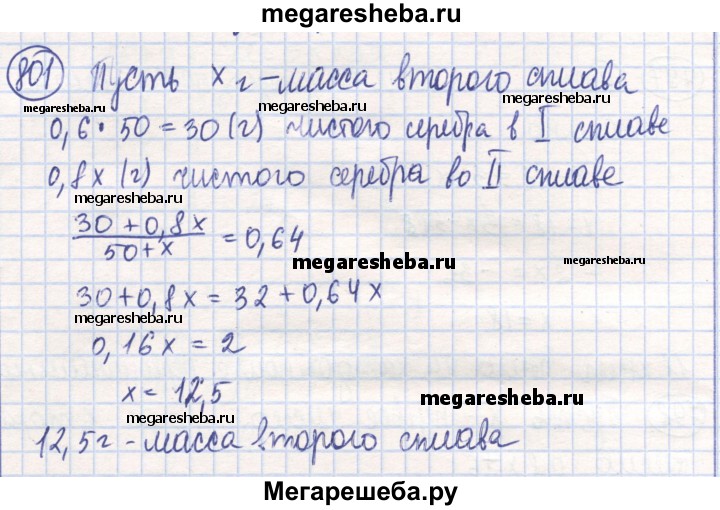 megaresheba.ru
801 Пусть x г – масса второго сплава
megaresheba.ru
megaresheba.ru
0,6 • 50 = 30 (г) чистого серебра в I сплаве
0,8x (г) чистого серебра во II сплаве
megaresheba.ru
megaresheba.ru
30 + 0,8x
50 + x
= 0,64
megaresheba.ru
megaresheba.ru
30 + 0,8x = 32 + 0,64x
megaresheba.ru
0,16x = 2
x = 12,5
megaresheba.ru
megaresheba.ru
12,5 г – масса второго сплава
Мегарешеба.ру